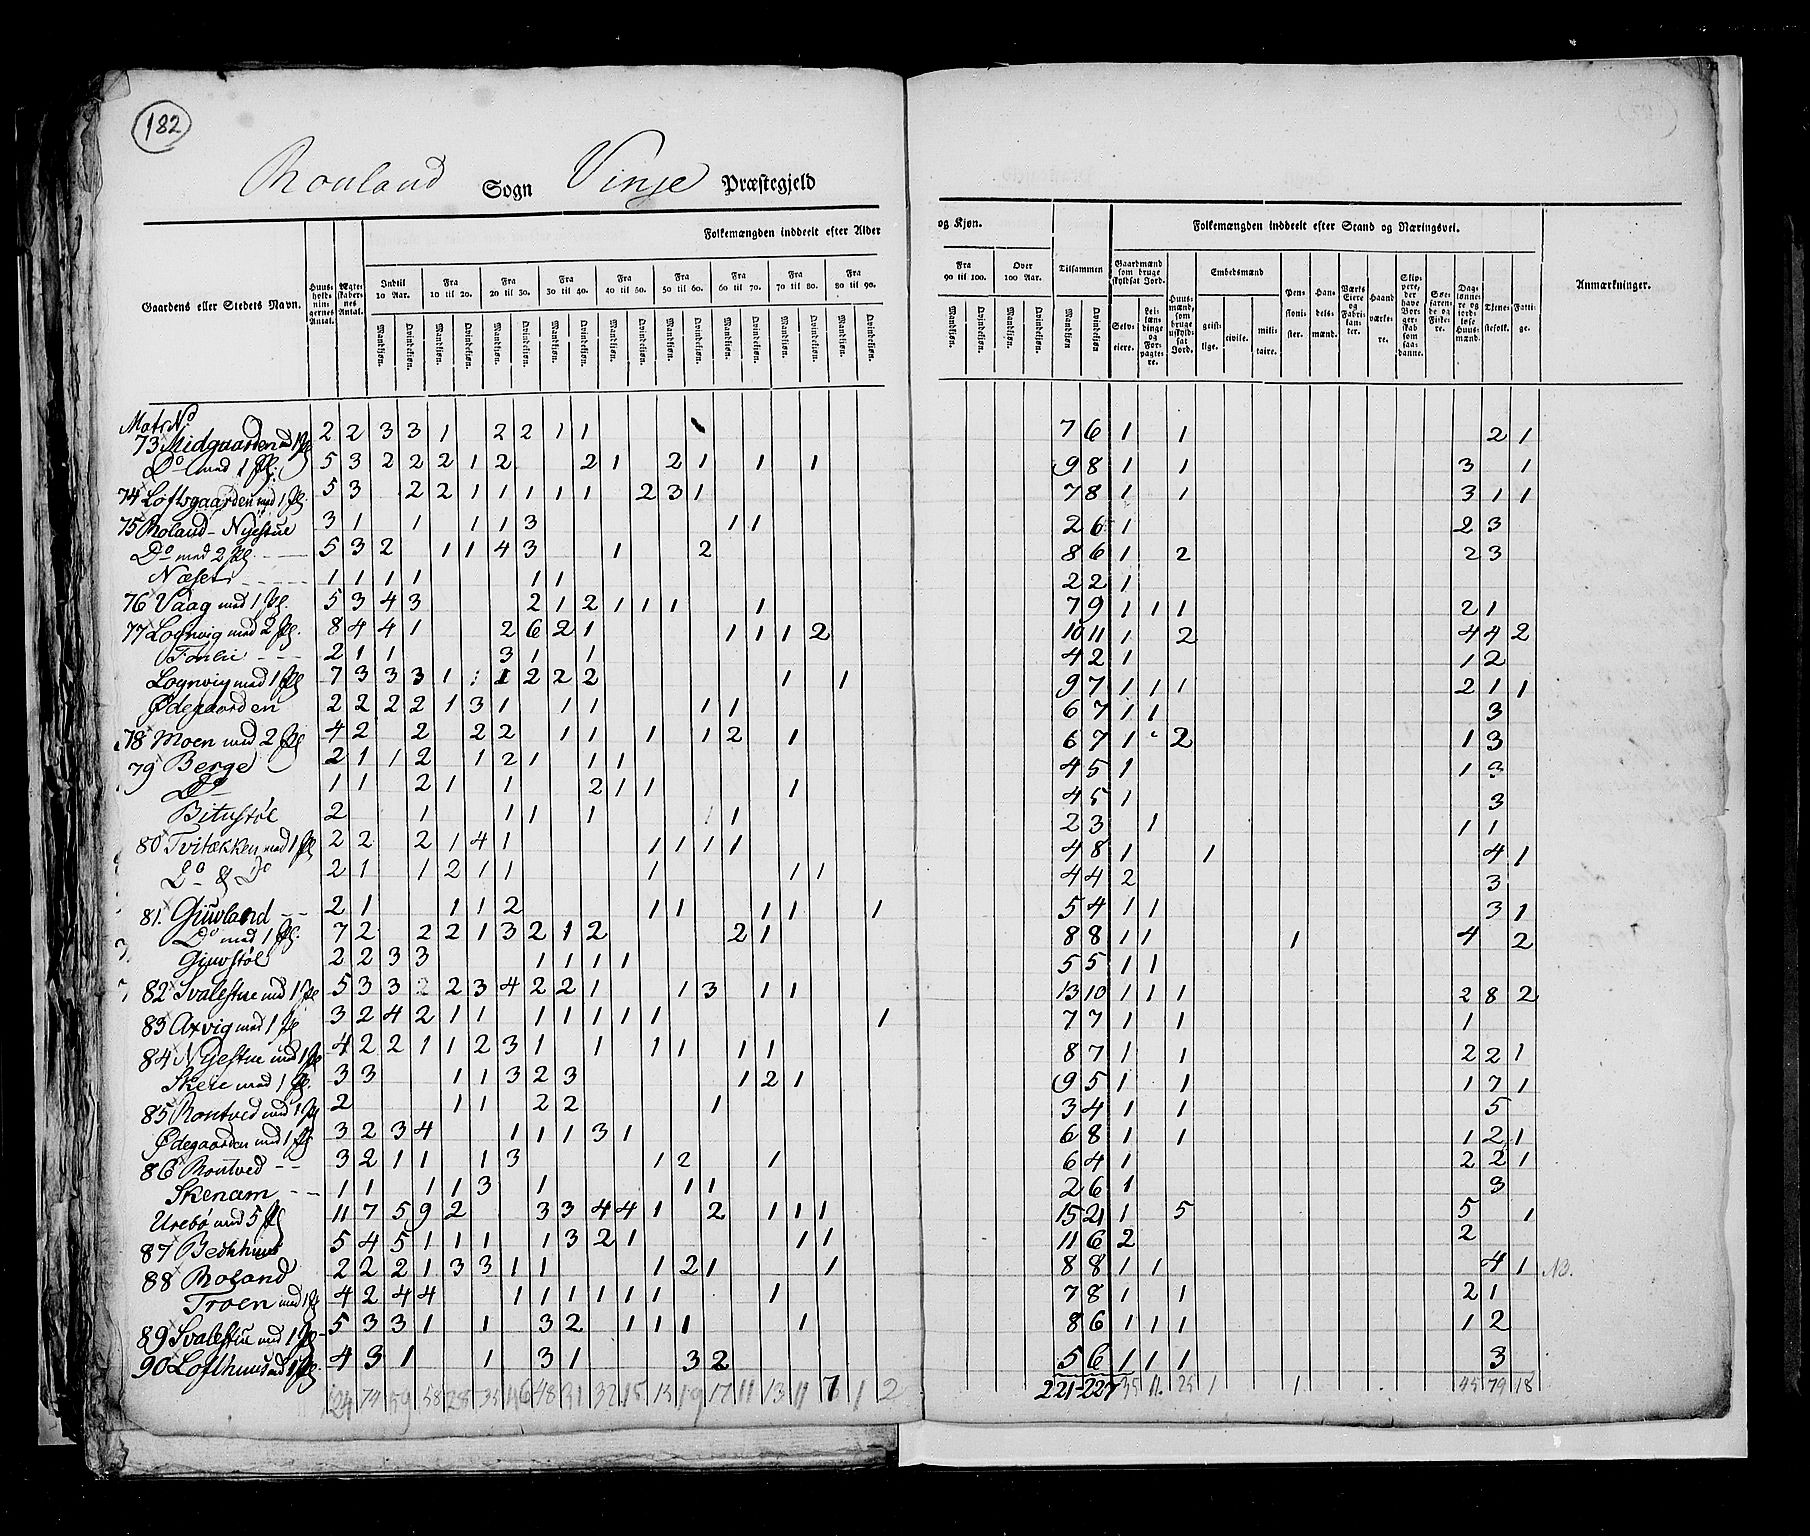 182
Rouland Sogn Vinje Præstegjeld
Gaardens eller Stedets Navn.
Huusholdningernes Antal.
Ægteskabernes Antal.
Folkemængden inddeelt efter Alder
Indtil 10 Aar.
Fra 10 til 20.
Fra 20 til 30.
Fra 30 til 40.
Fra 40 til 50.
Fra 50 til 60.
Fra 60 til 70.
Fra 70 til 80.
Fra 80 til 90.
Mandkjøn. Qvindekjøn.
og Kjøn.
Fra 90 til 100.
Over 100 Aar.
Tilsammen
Folkemængden inddeelt efter Stand og Næringsvei.
Gaardmænd som bruge skyldsat Jord.
Selveiere.
Leilændinge og Forpagtere.
Huusmænd, som bruge uskyldsat Jord.
Embedsmænd
geistlige. civile. militaire.
Pensionister.
Handelsmænd.
Værks Eiere og Fabrikanter.
Haandværkere.
Skippere, der have Borgerskab som saadanne.
Søefarende og Fiskere.
Daglønnere og jordløse Huusmænd.
Tjenestefolk.
Fattige.
Anmærkninger.
Matr No
73 Midgaarden med 1 Pl 2 2 3 3 1 2 2 1 1 7 6 1 1 2 1
Do med 1 Pl. 5 3 2 2 2 1 2 2 1 2 1 1 1 9 8 1 1 3 1
74 Loftsgaarden med 1 Pl. 5 3 2 2 1 1 1 1 1 2 3 1 7 8 1 1 3 1 1
75 Roland-Nyestue 3 1 1 1 1 3 1 1 2 6 1 2 3
Do med 2 Pl. 5 3 2 1 1 4 3 1 2 8 6 1 2 2 3
Næset 1 1 1 1 1 1 2 2 1
76 Vaag med 1 Pl. 5 3 4 3 2 1 2 1 1 1 1 7 9 1 1 1 2 1
77 Lognvig med 2 Pl. 8 4 4 1 2 6 2 1 1 1 1 2 10 11 1 2 4 4 2
2 1 1 3 1 1 4 2 1 1 2
Lognvig med 1 Pl 7 3 3 3 1 1 1 2 2 2 1 1 9 7 1 1 1 2 1 1
Ødegaarden 2 2 2 2 1 3 1 1 1 1 1 6 7 1 1 3
78 Moen med 2 Pl 4 2 2 2 2 1 1 1 1 2 1 6 7 1 2 1 3
79 Berge 2 1 1 2 1 2 1 1 1 4 5 1 1 3
Do 1 1 2 1 1 2 1 1 1 4 5 1 3
Bitustøl 2 1 1 1 1 1 1 2 3 1 1 1
80 Tvitækken med 1 Pl 2 2 2 1 4 1 1 1 1 1 4 8 1 1 4 1
Do & Do 2 1 1 2 1 1 1 1 1 4 4 2 3
81. Giuvland 2 1 1 1 2 1 1 1 1 1 5 4 1 1 3 1
Do med 1 Pl. 7 2 2 2 1 3 2 1 2 2 1 8 8 1 1 1 4 2
Giuvstøl 2 2 3 3 1 1 1 1 5 5 1 1
82 Svalestue med 1 Pl 5 3 3 2 2 3 4 2 2 1 1 3 1 1 13 10 1 1 1 2 8 2
83 Axvig med 1 Pl 3 2 4 2 1 1 1 1 1 1 1 1 7 7 1 1 1
84 Nyestue med 1 Pl 4 2 2 1 1 2 3 1 1 1 1 1 1 8 7 1 1 2 2 1
Skeie med 1 Pl. 3 3 1 1 3 2 3 1 2 1 9 5 1 1 1 7 1
85 Rontved med 1 Pl 2 1 1 2 2 1 3 4 1 1 5
Ødegaarden med 1 Pl 3 2 3 4 1 1 1 3 1 6 8 1 1 1 2 1
86 Rontved 3 2 1 1 1 3 1 2 1 6 4 1 2 2 1
Skenam 1 1 1 1 3 1 1 1 2 6 1 3
Urebø med 5 Pl 11 7 5 9 2 3 3 4 4 1 2 1 1 1 15 21 1 5 5 1
87 Bekhuus 5 4 5 1 1 1 1 3 2 1 1 1 11 6 2 2
88 Roland 2 2 2 1 3 3 1 1 1 2 1 1 8 8 1 1 4 1 NB.
Troen med 1 Pl 4 2 4 4 1 1 1 1 1 1 1 7 8 1 1 2 1
89 Svalestue med 1 Pl 5 3 3 1 1 3 2 1 1 1 1 8 6 1 1 1 1 2
90 Lofthuus med 1 Pl. 4 3 1 1 3 1 3 2 5 6 1 1 1 3
124 74 59 58 28 35 46 48 31 32 15 15 19 17 11 13 11 7 1 2 221 227 35 11. 25 1 1. 45 79 18